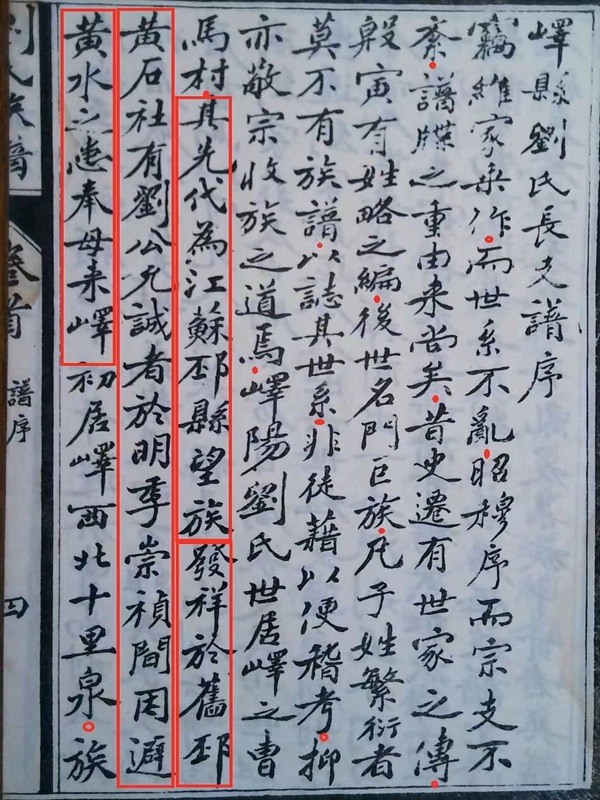 嶧縣劉氏長支譜序
竊維家乘作而世系不亂昭穆序而宗支不
紊譜牒之重由来尚矣昔史遷有世家之傳
殷寅有姓略之編後世名門巨族凡子姓繁衍者
莫不有族譜以誌其世系非徒藉以便稽考抑
亦敬宗收族之道焉嶧陽劉氏世居嶧之曹
馬村其先代為江蘇邳縣望族發祥於舊邳
黃石社有劉公允誠者於明季崇禎間因避
黃水之患奉母来嶧初居嶧西北十里泉族
劉氏族譜
卷首
譜序
四